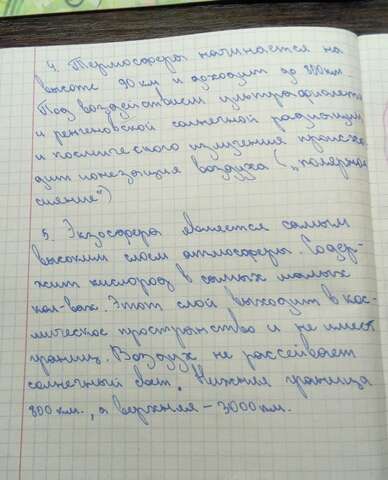 4. Термосфера начинается на
высоте 90 км и доходит до 800 км.
Под воздействием ультрафиолет
и рентгеновской солнечной радиации
и космического излучения происхо-
дит ионезация воздуха („полярное
сияние")
5. Экзосфера является самым
высоким слоем атмосферы. Содер-
жит кислород в самых малых
кол-вах. Этот слой выходит в кос-
мическое пространство и не имеет
границ. Воздух не рассеивает
солнечный свет. Нижняя граница
800 км., а верхняя – 3000 км.